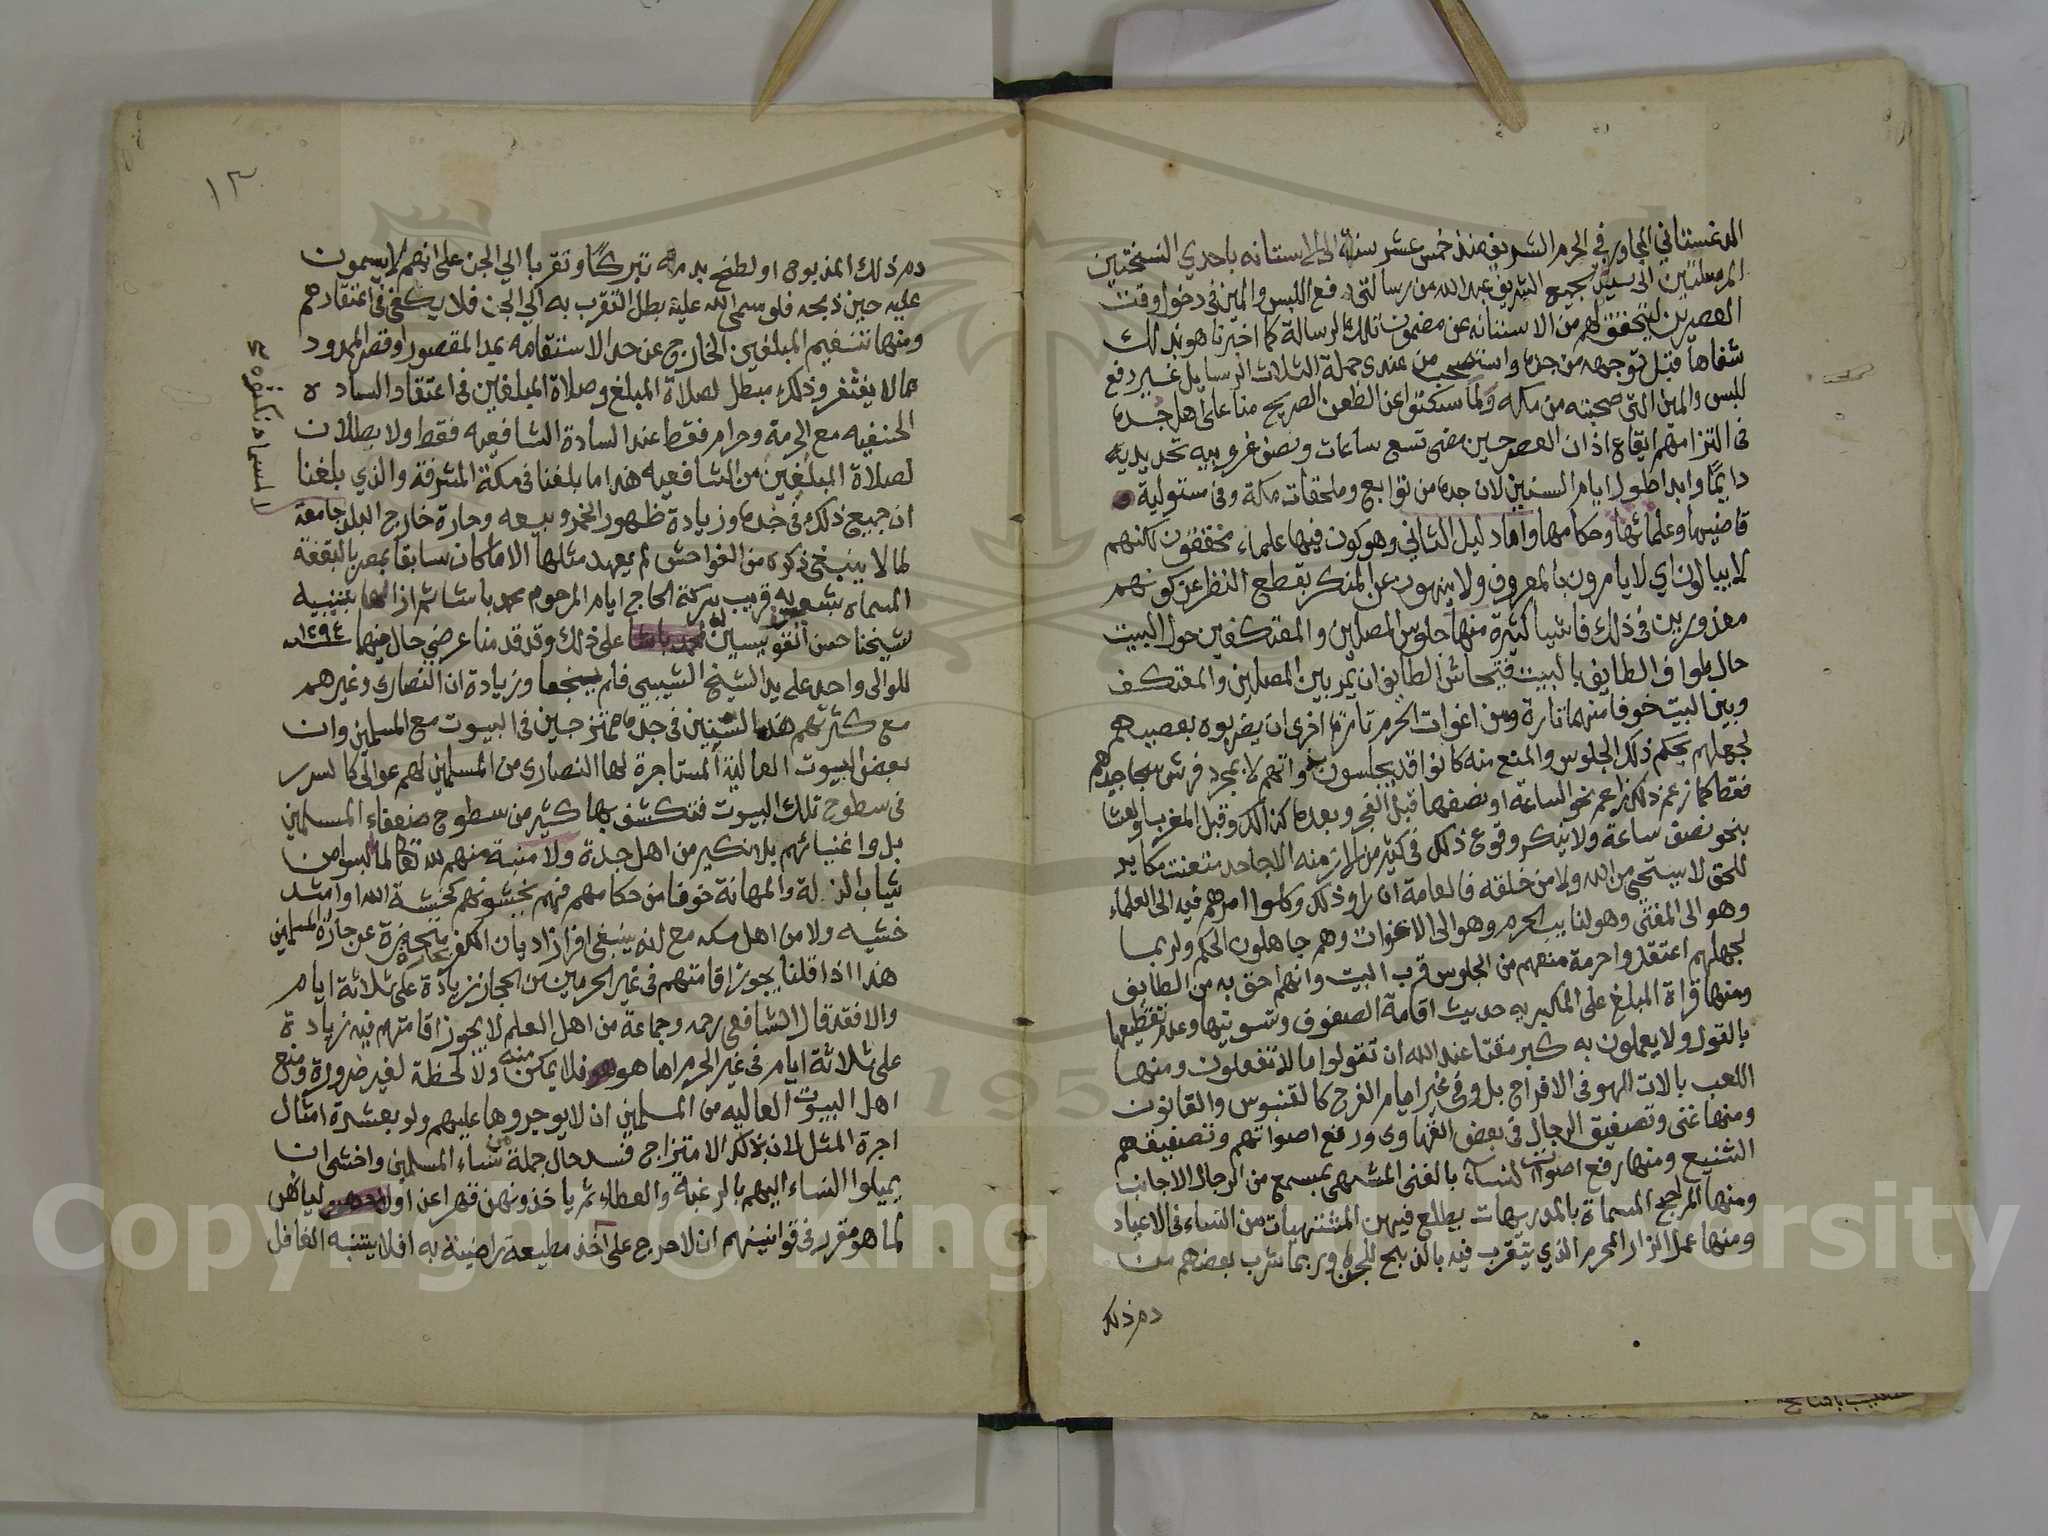 الدغستاني المجاور في الحرم الشريف منذ خمس عشر سنة الى الاستانه باحدي النسختين
المرسلتين الى سيد الجميع الشريف عبد الله من رسالتي دفع اللبس والمين في دخول وقت
العصرين ليتحقق لهم من الاستانه عن مضمون تلك الرسالة كما اخبرنا هو بذلك
شفاها قبل توجهه من جده واستصحب من عندي جملة الثلاث الرسايل غير دفع
اللبس والمين التي صحبته من مكه ولما سكتوا عن الطعن الصريح منا على اهل جده
في التزامهم ايقاع اذان العصر حين مضى تسع ساعات ونصف غروبيه تحديديه
دايمًا وابدا طول ايام السنين لان جده من توابع وملحقات مكة وفي مسئولية
قاضيها وعلمائها وحكامها وافاد ليل الثاني وهو كون فيها علماء محققون لكنهم
لا يبالون اي لا يامرون بالمعروف ولا ينهون عن المنكر بقطع النظر عن كونهم
معذورين في ذلك فاشيا كثيرة منها جلوس المصلين والمعتكفين حول البيت
حال طواف الطايف بالبيت فيتحاشى الطايف ان يمر بين المصلين والمعتكف
وبين البيت خوفا منهما تارة ومن اغوات الحرم تارة اخرى ان يضربوه بعصيهم
لجهلهم بحكم ذلك الجلوس والمنع منه كانوا قد يجلسون بذواتهم لا بمجرد فرش سجاجيدهم
فقط كما زعم ذلك زاعم نحو الساعة او نصفها قبل الفجر وبعده كذلك وقبل المغرب والعشا
بنحو نصف ساعة ولا ينكر وقوع ذلك في كثير من الازمنه الا جاحد متعنت مكابر
للحق لا يستحي من الله ولا من خلقه فالعامة ان راو ذلك وكلوا امرهم فيه الى العلماء
وهو الى المفتي وهو لنايب الحرم وهو الى الاغوات وهم جاهلون الحكم ولربما
لجهلهم اعتقدوا حرمة منعهم من الجلوس قرب البيت وانهم احق به من الطايف
ومنها قراة المبلغ على المكبريه حديث اقامة الصفوف وتسويتها وعدم تقطيعها
بالقول ولا يعملون به كبر مقتا عند الله ان تقولوا ما لا تفعلون ومنها
اللعب بالات الهو في الافراح بل وفي غير ايام الفرح كالقنبوس والقانون
ومنها غنى وتصفيق الرجال في بعض القهاوى ورفع اصواتهم وتصفيقهم
الشنيع ومنها رفع اصوات النساء بالغنى المشهى بمسمع من الرجال الاجانب
ومنها المراجيح المسماة بالمدريهات يطلع فيهن المشتهيات من النساء في الاعياد
ومنها عمل الزار المحرم الذي يتقرب فيه بالذبح للجن وربما شرب بعضهم من
دم ذلك
١٣
دم ذلك المذبوح او لطخ بدمه تبركًا وتقربا الي الجن على انهم لا يسمون
عليه حين ذبحه فلو سمى الله عليه بطل التقرب به الي الجن فلا يكفي في اعتقادهم
ومنها تنغيم المبلغين الخارج عن حد الاستقامه بمد المقصور وقصر الممدود
مما لا يغتفر وذلك مبطل لصلاة المبلغ وصلاة المبلغين في اعتقاد الساده
الحنفيه مع الحرمة وحرام فقط عند السادة الشافعيه فقط ولا بطلان
لصلاة المبلغين من الشافعيه هذا ما بلغنا في مكة المشرفة والذي بلغنا
ان جميع ذلك في جده وزيادة ظهور الخمر وبيعه وحارة خارج البلد جامعة
لما لا ينبغي ذكره من الفواحش لم يعهد مثلها الا ما كان سابقا بمصر بالبقعة
المسماه بشعبه قريب بركة الحاج ايام المرحوم محمد باشا ثم ازالها بتنبيه
شيخنا حسن القويسني له على ذلك وقد قدمنا عرضي حال فيها ١٢٩٤سنه
للوالى واحد على يد الشيخ الشيبي فلم ينجعا وزيادة ان النصارى وغيرهم
مع كثرتهم هذه السنين في جده ممتزجين في البيوت مع المسلمين وان
بعض البيوت العالية المستاجرة لها النصارى من المسلمين لهم عوالى كالسرر
في سطوح تلك البيوت فتكشف بها كثير من سطوح ضعفاء المسلمين
بل واغنيائهم بلا نكير من اهل جدة ولا منبه منهم لله تعالى لما لبسوا من
ثياب الذلة والمهانة خوفا من حكامهم فهم يخشونهم كخشية الله او اشد
خشيه ولا من اهل مكه مع انه ينبغي افراز اديان الكفر بحارة متحيزة عن حارة المسلمين
هذا اذا قلنا يجوز اقامتهم في غير الحرمين من الحجاز زيادة على ثلاثة ايام
والا فقد قال الشافعي رحمه وجماعة من اهل العلم لا يجوز اقامتهم فيه زيادة
على ثلاثة ايام في غير الحرم اما هو فلا يمكن منه ولا لحظة لغير ضرورة ومنع
اهل البيوت العاليه من المسلمين ان لا يوجروها عليهم ولو بعشرة امثال
اجرة المثل لان بذلك الامتزاج فسد حال جملة من نساء المسلمين واخشى ان
يميلوا النساء اليهم بالرغبة والعطاء ثم ياخذونهن قهرا عن اوليائهن
لما هو مقرر في قوانينهم ان لا حرج على اخذ مطيعة راضية به افلا يتنبه الغافل